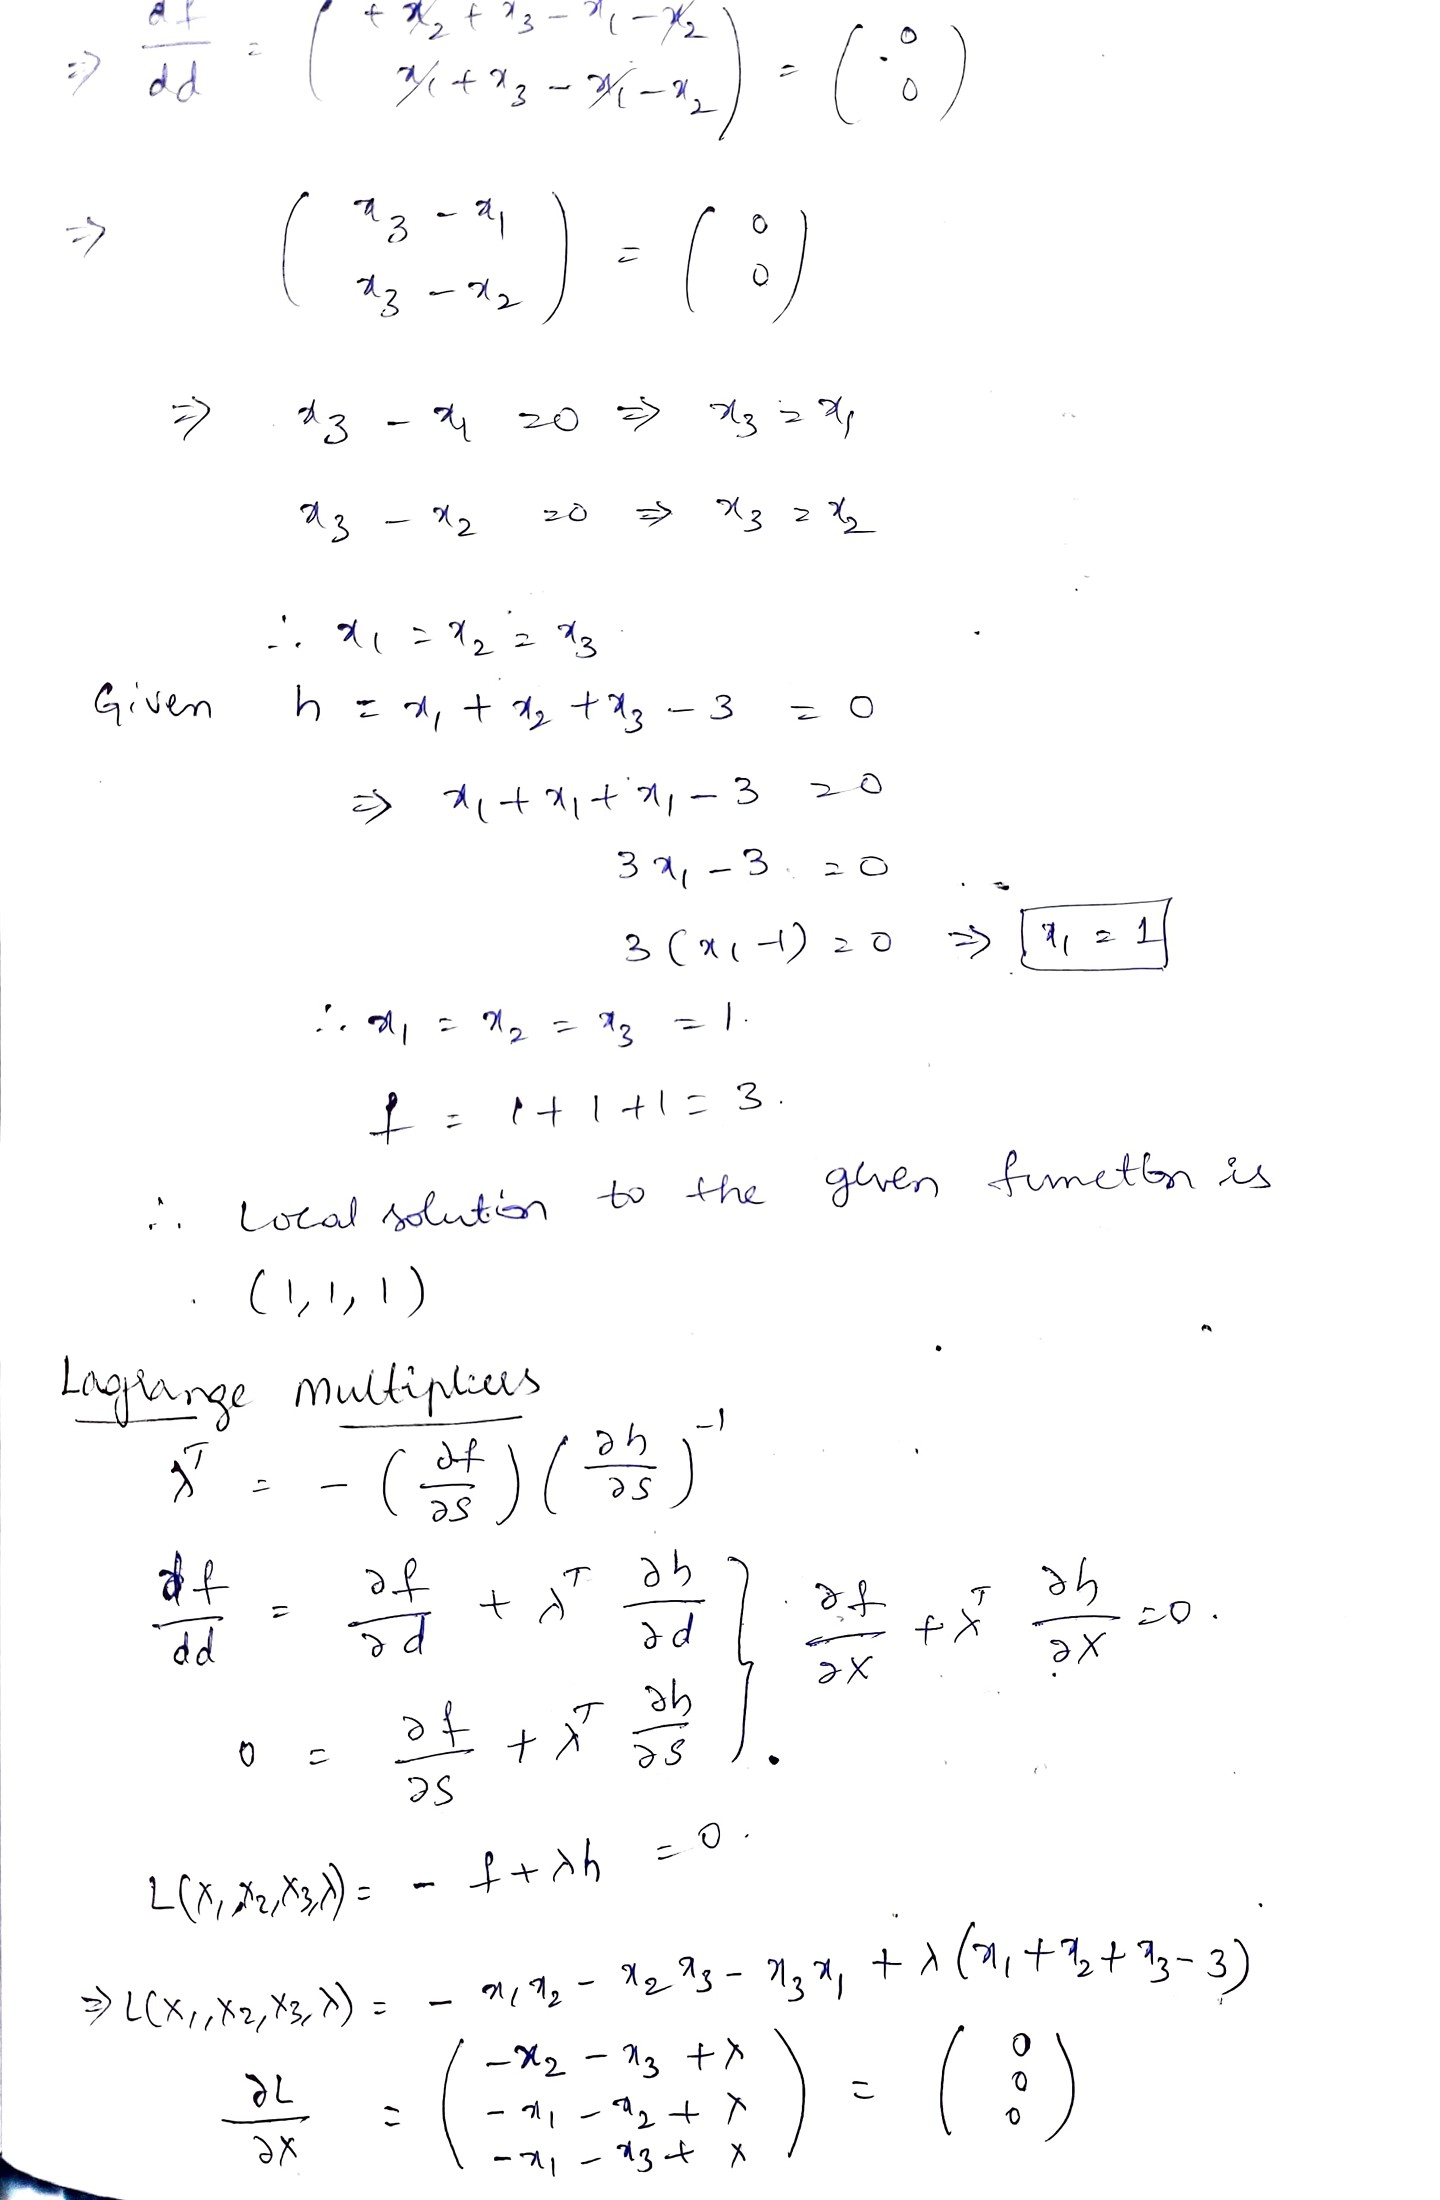 ⇒ df/dd = ( + x₂ + x₃ - x₁ - x₂
x₁ + x₃ - x₁ - x₂ ) = ( 0
0 )
⇒ ( x₃ - x₁
x₃ - x₂ ) = ( 0
0 )
⇒ x₃ - x₁ = 0 ⇒ x₃ = x₁
x₃ - x₂ = 0 ⇒ x₃ = x₂
∴ x₁ = x₂ = x₃
Given h = x₁ + x₂ + x₃ - 3 = 0
⇒ x₁ + x₁ + x₁ - 3 = 0
3x₁ - 3 = 0
3(x₁ - 1) = 0 ⇒ x₁ = 1
∴ x₁ = x₂ = x₃ = 1.
f = 1 + 1 + 1 = 3.
∴ Local solution to the given function is
(1, 1, 1)
Lagrange multipliers
λᵀ = - (∂f/∂s) (∂h/∂s)⁻¹
df/dd = ∂f/∂d + λᵀ ∂h/∂d } ∂f/∂x + λᵀ ∂h/∂x = 0.
0 = ∂f/∂s + λᵀ ∂h/∂s
L(x₁, x₂, x₃, λ) = - f + λh = 0.
⇒ L(x₁, x₂, x₃, λ) = - x₁x₂ - x₂x₃ - x₃x₁ + λ(x₁ + x₂ + x₃ - 3)
∂L/∂x = ( -x₂ - x₃ + λ
-x₁ - x₂ + λ
-x₁ - x₃ + λ ) = ( 0
0
0 )